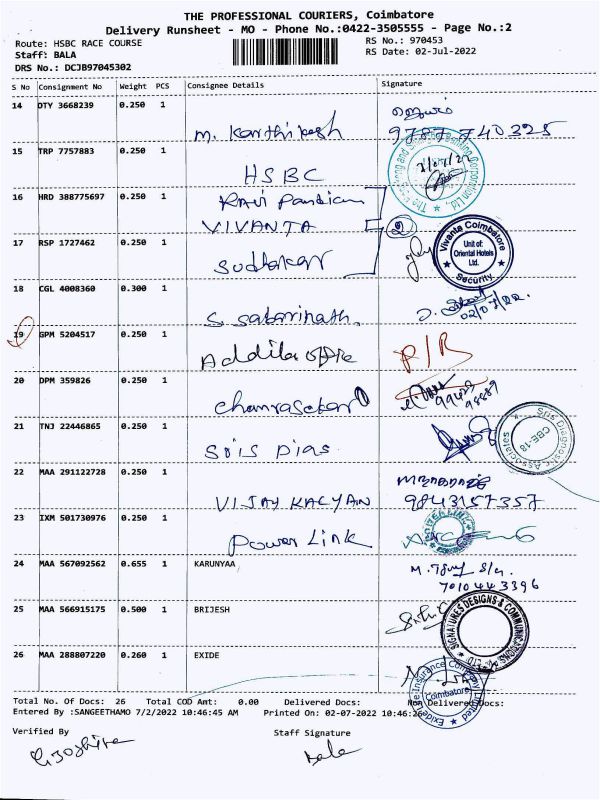 THE PROFESSIONAL COURIERS, Coimbatore
Delivery Runsheet - MO - Phone No.:0422-3505555 - Page No.:2
Route: HSBC RACE COURSE
RS No.: 970453
Staff: BALA
RS Date: 02-Jul-2022
DRS No.: DCJB97045302
S No Consignment No Weight PCS Consignee Details Signature
14 DTY 3668239 0.250 1 M. Karthikesh 9787 740325
15 TRP 7757883 0.250 1 HSBC
16 HRD 388775697 0.250 1 Ravi Pandian
VIVANTA
17 RSP 1727462 0.250 1 Sudhakar
Vivanta Coimbatore
Unit of:
Oriental Hotels
Ltd.
Security.
18 CGL 4008360 0.300 1 S. Sabarinath. 02/07/22
19 GPM 5204517 0.250 1 P/R
20 DPM 359826 0.250 1
21 TNJ 22446865 0.250 1
Sris Diagnostic Associates
CBE-18
22 MAA 291122728 0.250 1 VIJAY KALYAN 9843157357
23 IXM 501730976 0.250 1 Power Link
24 MAA 567092562 0.655 1 KARUNYAA 7010443396
25 MAA 566915175 0.500 1 BRIJESH
SIGNATURES DESIGNS & COMMUNICATIONS
26 MAA 288807220 0.260 1 EXIDE
Exide Life Insurance Company Limited
Coimbatore
Total No. Of Docs: 26 Total COD Amt: 0.00 Delivered Docs: Non Delivered Docs:
Entered By :SANGEETHAMO 7/2/2022 10:46:45 AM Printed On: 02-07-2022 10:46:26
Verified By Staff Signature
Bala